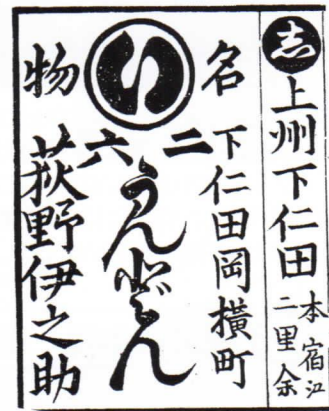 志 上州下仁田 本宿江
二里余
名 い 物
下仁田岡横町
二六
うんどん
荻野伊之助